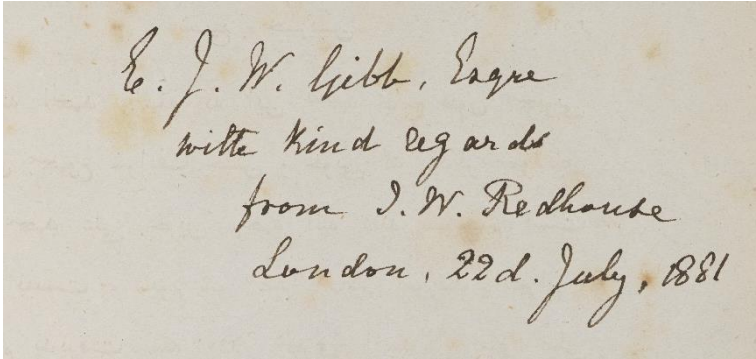 E. J. W. Gibb, Esqre
with kind regards
from J. W. Redhouse
London, 22d. July, 1881